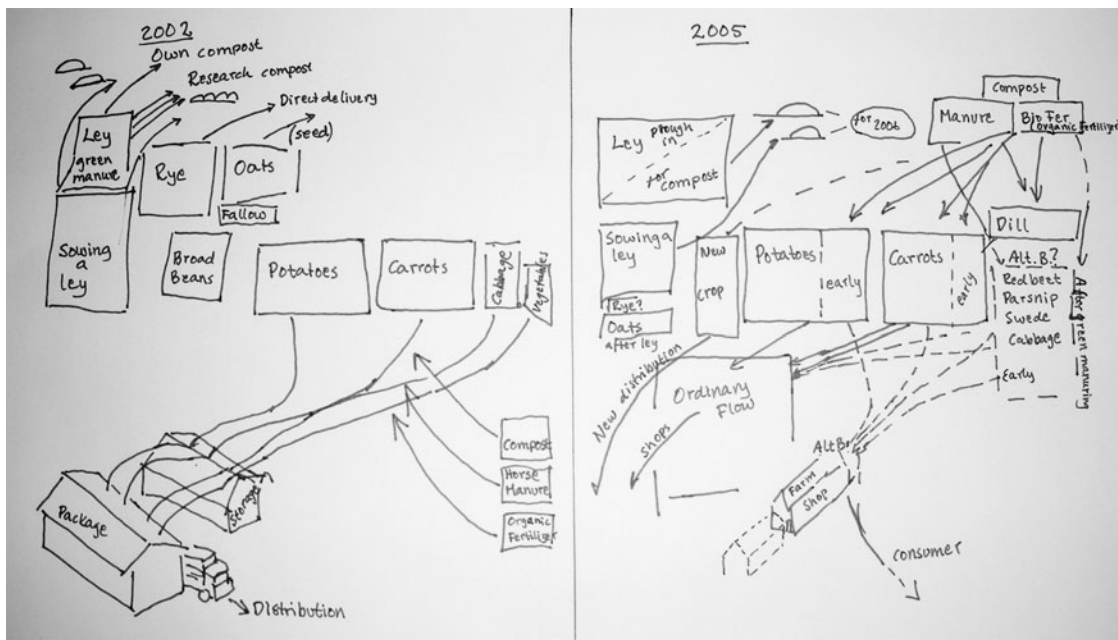 2002
Own compost
Research compost
Direct delivery
(seed)
Ley
green
manure
Rye
Oats
Fallow
Sowing
a
ley
Broad
Beans
Potatoes
Carrots
Cabbage
Vegetables
Compost
Horse
Manure
Organic
Fertilizer
Storage
Package
Distribution
2005
Compost
Manure
Bio Fer
(Organic Fertilizer)
for 2006
Ley plough
in
for
compost
Sowing a
ley
Rye?
Oats
after ley
New
crop
Potatoes
early
Carrots
early
Dill
Alt. B.?
Redbeet
Parsnip
Swede
Cabbage
Early
After green manuring
New distribution
Ordinary
Flow
Shops
Alt B.
Farm
Shop
consumer